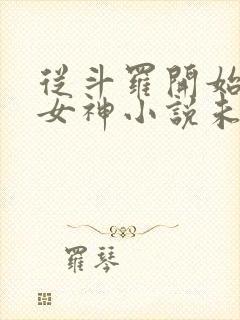 從斗羅開始
女神小說未
羅琴